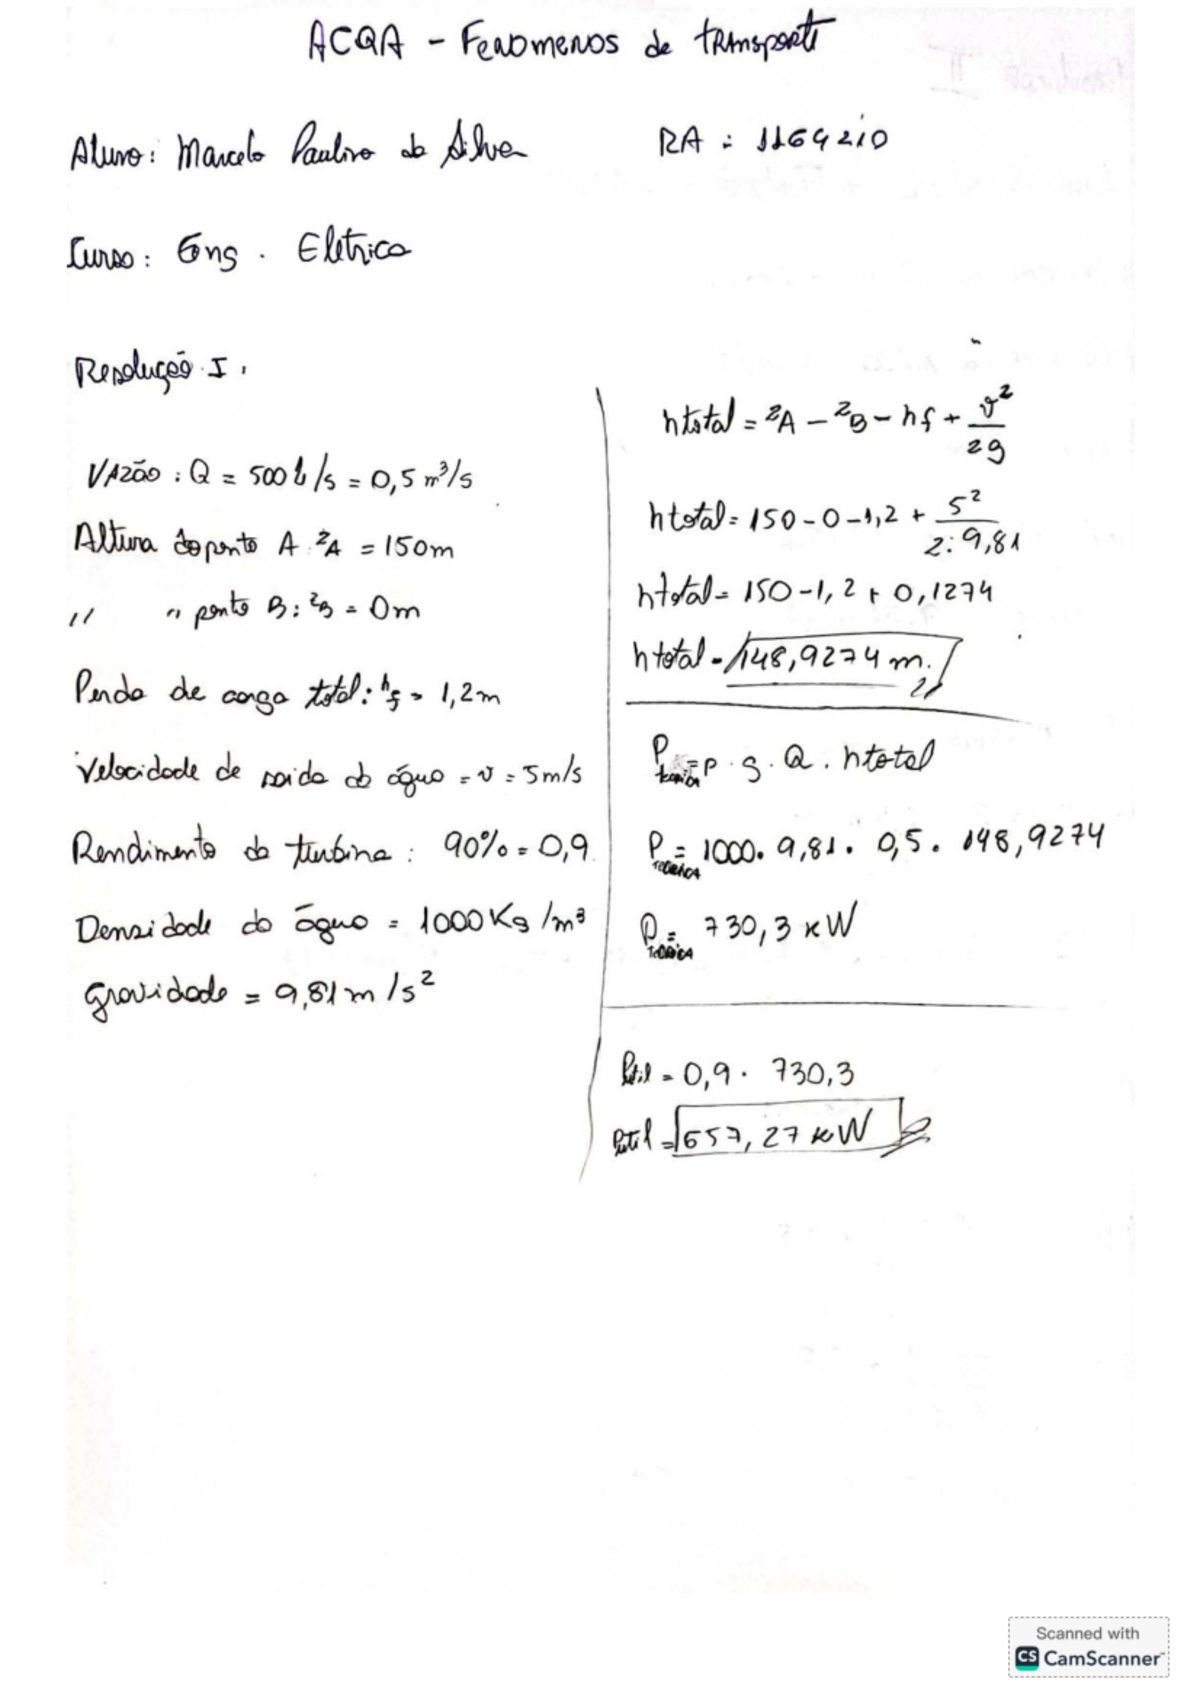 ACQA - Fenomenos de transporte
Aluno: Marcelo Paulino da Silva RA: 1164210
Curso: Eng. Elétrica
Resolução I.
VAZÃO: Q = 500 L/s = 0,5 m³/s
Altura do ponto A: ZA = 150m
" " ponto B: ZB = 0m
Perda de carga total: hf = 1,2m
Velocidade de saida da água = v = 5m/s
Rendimento da turbina: 90% = 0,9
Densidade da água = 1000Kg/m³
gravidade = 9,81m/s²
htotal = ZA - ZB - hf + v²/2g
htotal = 150 - 0 - 1,2 + 5²/2.9,81
htotal = 150 - 1,2 + 0,1274
htotal = 148,9274 m.
P teorica = ρ . g . Q . htotal
P TEORICA = 1000. 9,81. 0,5. 148,9274
P TEORICA = 730,3 kW
Putil = 0,9 . 730,3
Putil = 657,27 kW
Scanned with
CS CamScanner